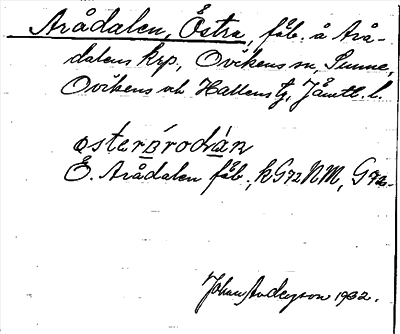 Arådalen, Östra, fäb. å Arå-
dalens krp, Ovikens sn, Sunne,
Ovikens och Hallens tg, Jämtl. l.
österǫ́rodán
Ö. Arådalen fåb., kG72NM, G72.
Johan Anderson 1932.